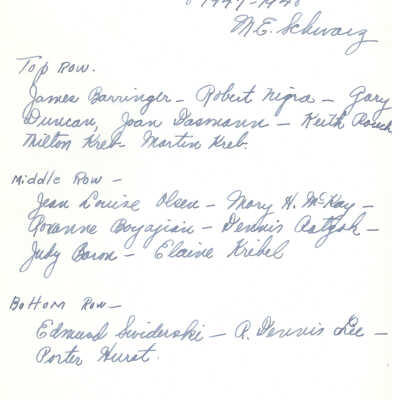 1947-1948
M.E. Schwarz
Top Row.
James Barringer - Robert Nigra - Gary
Duncan, Joan Dasmann - Keith Rouch
Milton Kreb - Martin Kreb.
Middle Row -
Jean Louise Olsen - Mary H. McKay -
Roxanne Boyajian - Dennis
Judy Boron - Elaine Kribel
Bottom Row -
Edmund Swiderski - R. Dennis Lee -
Porter Hurst.